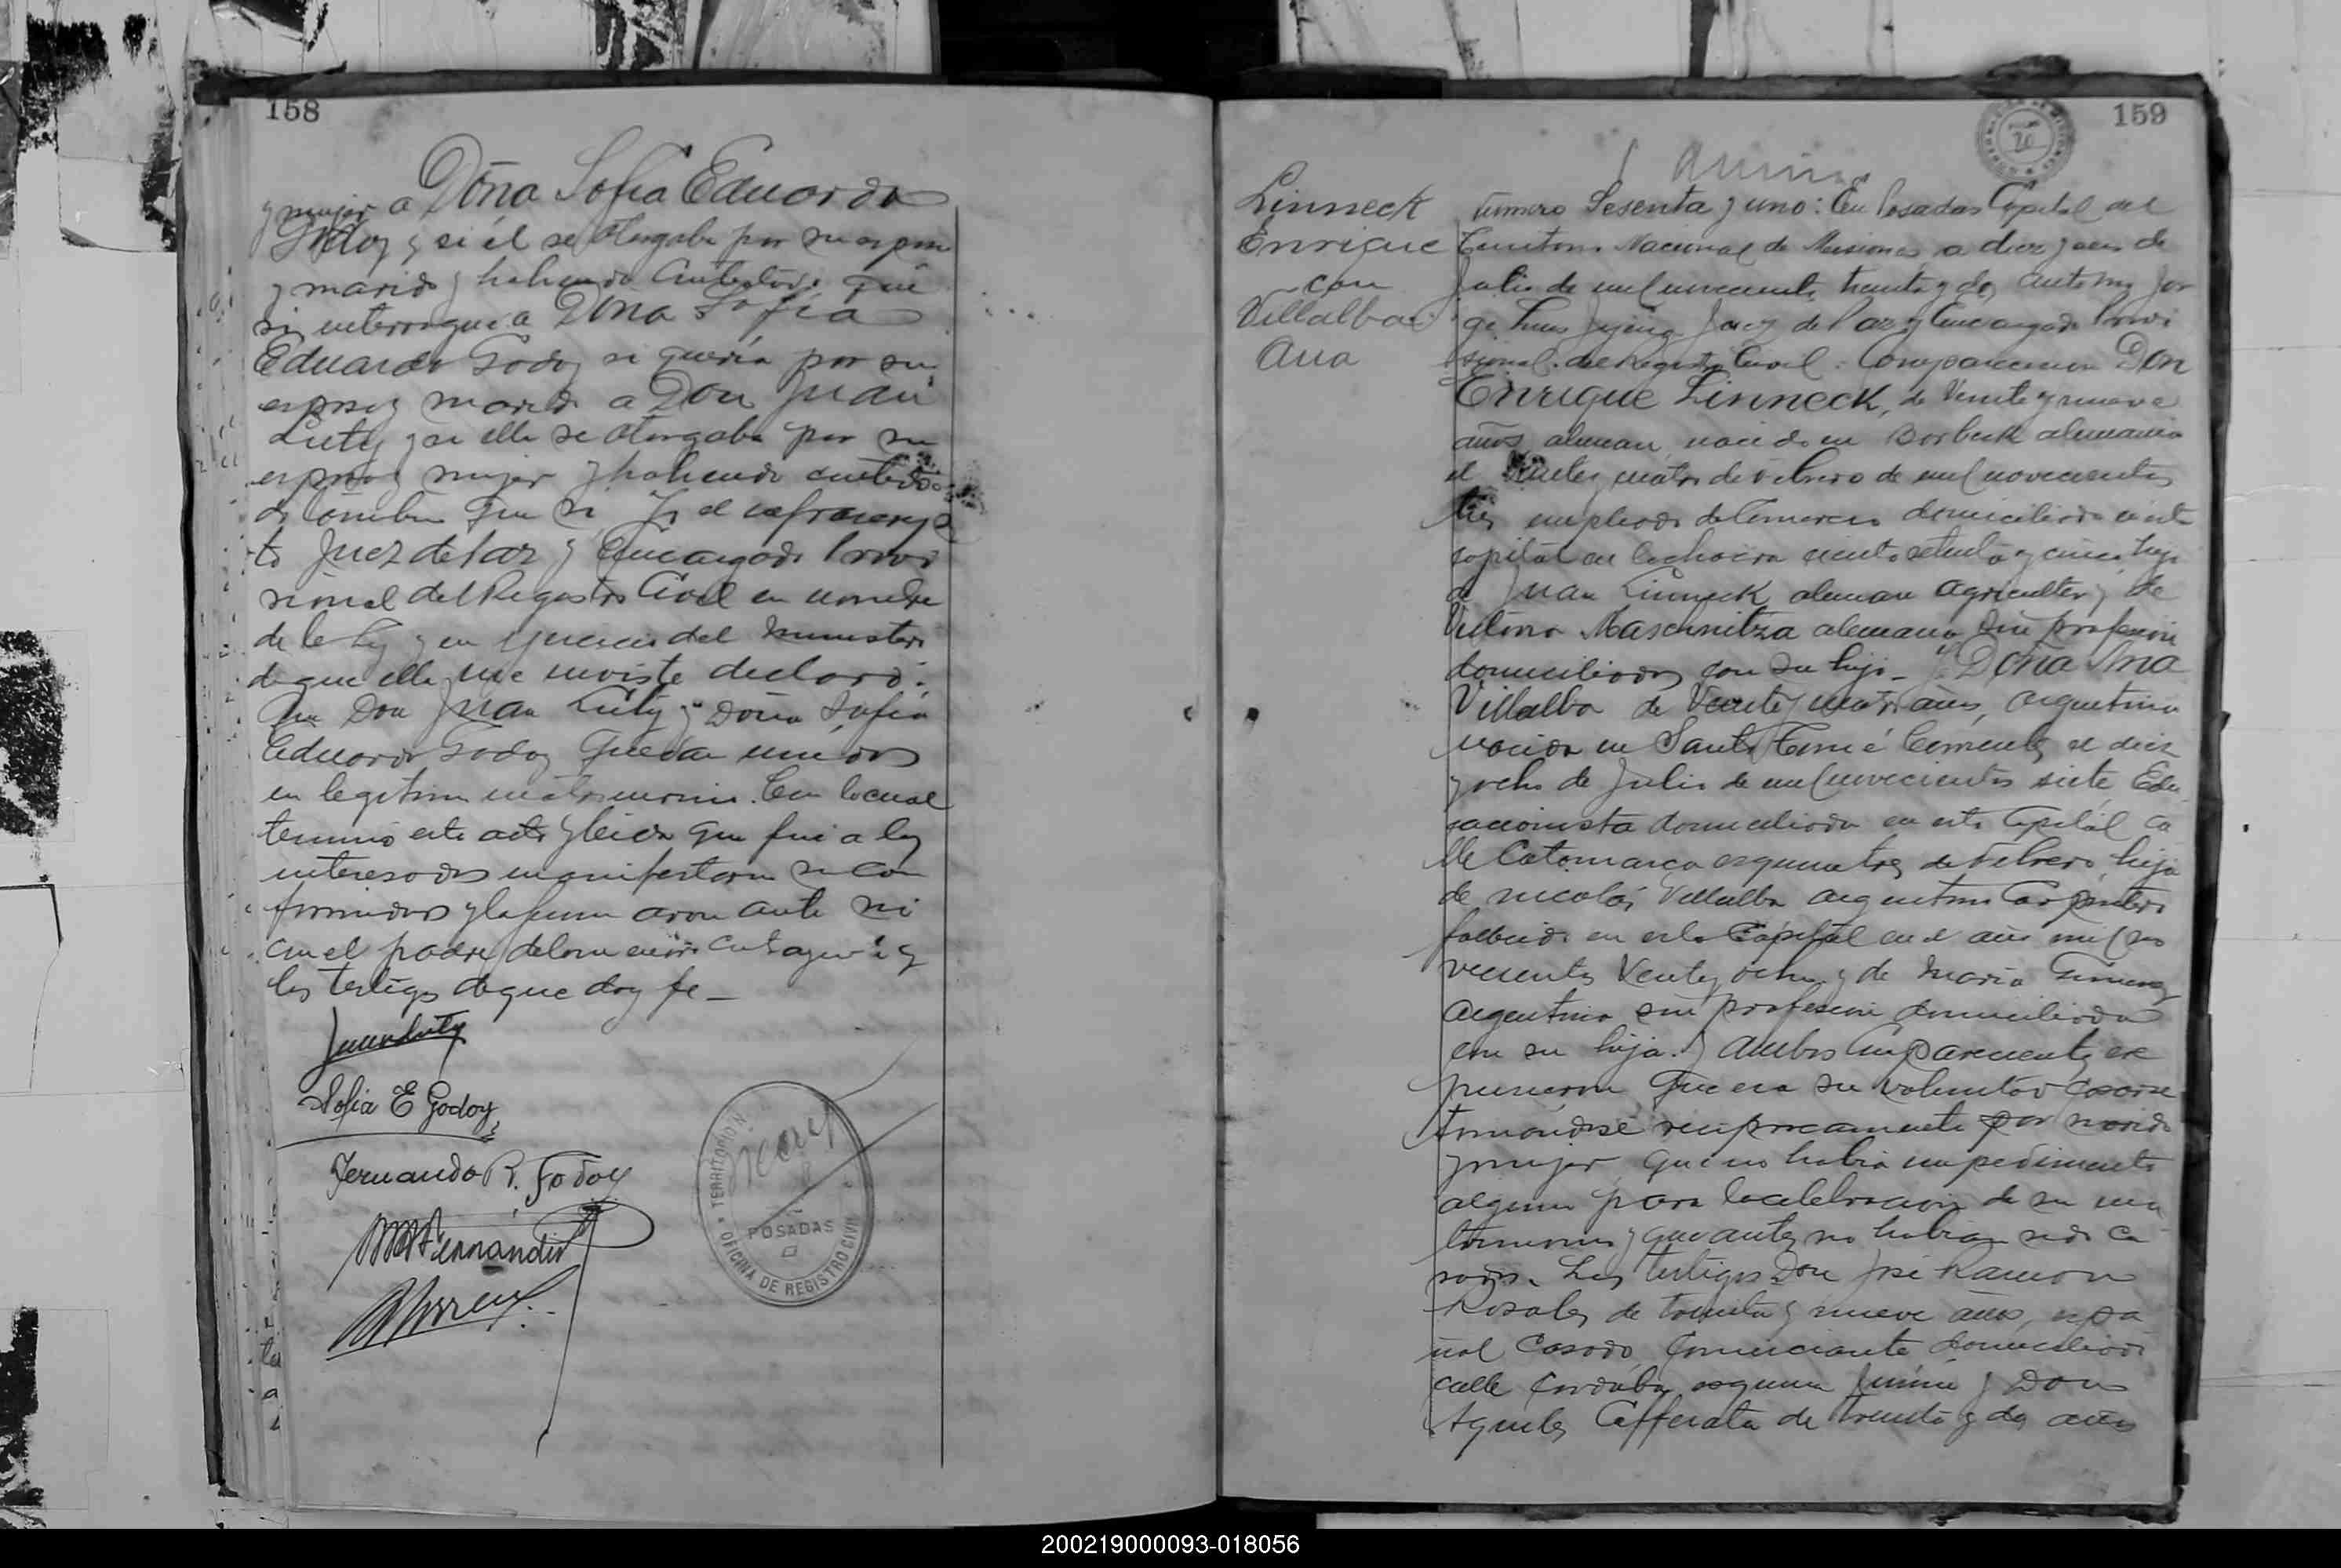 158
y mujer a Doña Sofia Eduarda
Godoy y si él se otorgaba por su esposo
y marido y habiendo contestado que
si interrogué a Doña Sofia
Eduarda Godoy si queria por su
esposo y marido a Don Juan
Luty y si ella se otorgaba por su
esposa y mujer y habiendo contestado
do tambien que si Yo el infrascrip
to Juez de Paz y Encargado Provi
sional del Registro Civil en nombre
de la ley y en ejercicio del ministerio
de que ella me inviste declaro:
Que Don Juan Luty y Doña Sofia
Eduarda Godoy quedan unidos
en legitimo matrimonio. Con lo cual
termino este acto y leida que fué a los
interesados manifestaron su con
formidad y la firmaron ante mi
con el padre de la menor contrayente y
los testigos de que doy fe _
Juan Luty
Sofia E Godoy
Fernando R. Godoy
Fernandez
TERRITORIO N
POSADAS
OFICINA DE REGISTRO CIVIL
159
Linneck
Enrique
con
Villalba
Ana
Número Sesenta y uno: En Posadas Capital del
Territorio Nacional de Misiones a diez y seis de
Julio de mil novecientos treinta y dos ante mi Jor
ge Juez de Paz y Encargado Provi
sional del Registro Civil: Comparecieron Don
Enrique Linneck, de Veinte y nueve
años aleman nacido en Borbeck alemania
el Veinte y cuatro de Febrero de mil novecientos
tres empleado de Comercio domiciliado en esta
capital en la chacra ciento setenta y cinco, hijo
de Juan Linneck aleman agricultor y de
Victoria Maschnitza alemana sin profesion
domiciliados con su hijo _ Y Doña Ana
Villalba de Veinte y cuatro años, argentina
nacida en Santo Tomé Corrientes el diez
y ocho de Julio de mil novecientos siete Edu
cacionista domiciliada en esta Capital ca
lle Catamarca esquina tres de Febrero, hija
de Nicolás Villalba argentino Carpintero
fallecido en esta Capital en el año mil no
vecientos Veinte y ocho y de Maria Gimenez
argentina sin profesion domiciliada
con su hija. Y ambos Comparecientes ex
pusieron Que era su voluntad casarse
tomandose reciprocamente por marido
y mujer, que no habia impedimento
alguno para la celebracion de su ma
trimonio y que antes no habian sido ca
sados. Los testigos Don José Ramon
Rosales de treinta y nueve años, espa
ñol Casado, Comerciante domiciliado
calle Cordoba esquina Junin y Don
Aquiles Cafferata de treinta y dos años
200219000093-018056